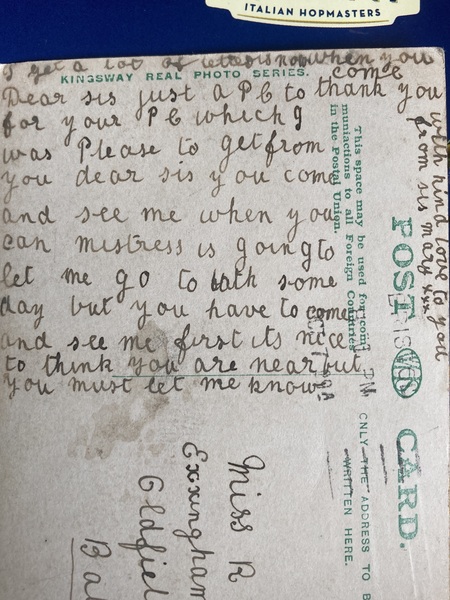 ITALIAN HOPMASTERS
I get a lot of now when you
come
KINGSWAY REAL PHOTO SERIES.
Dear sis just a PC to thank you
for your PC which I
was Please to get from
you dear sis you come
and see me when you
can mistress is going to
let me go to bath some
day but you have to come
and see me first its nice
to think you are near but
you must let me know
with kind love to you
from sis mary xxx
This space may be used for com-
muniactions to all Foreign Countries
in the Postal Union.
POST CARD.
ONLY THE ADDRESS TO B
WRITTEN HERE.
PM
Miss R
Exxingham
Oldfiel
Ba